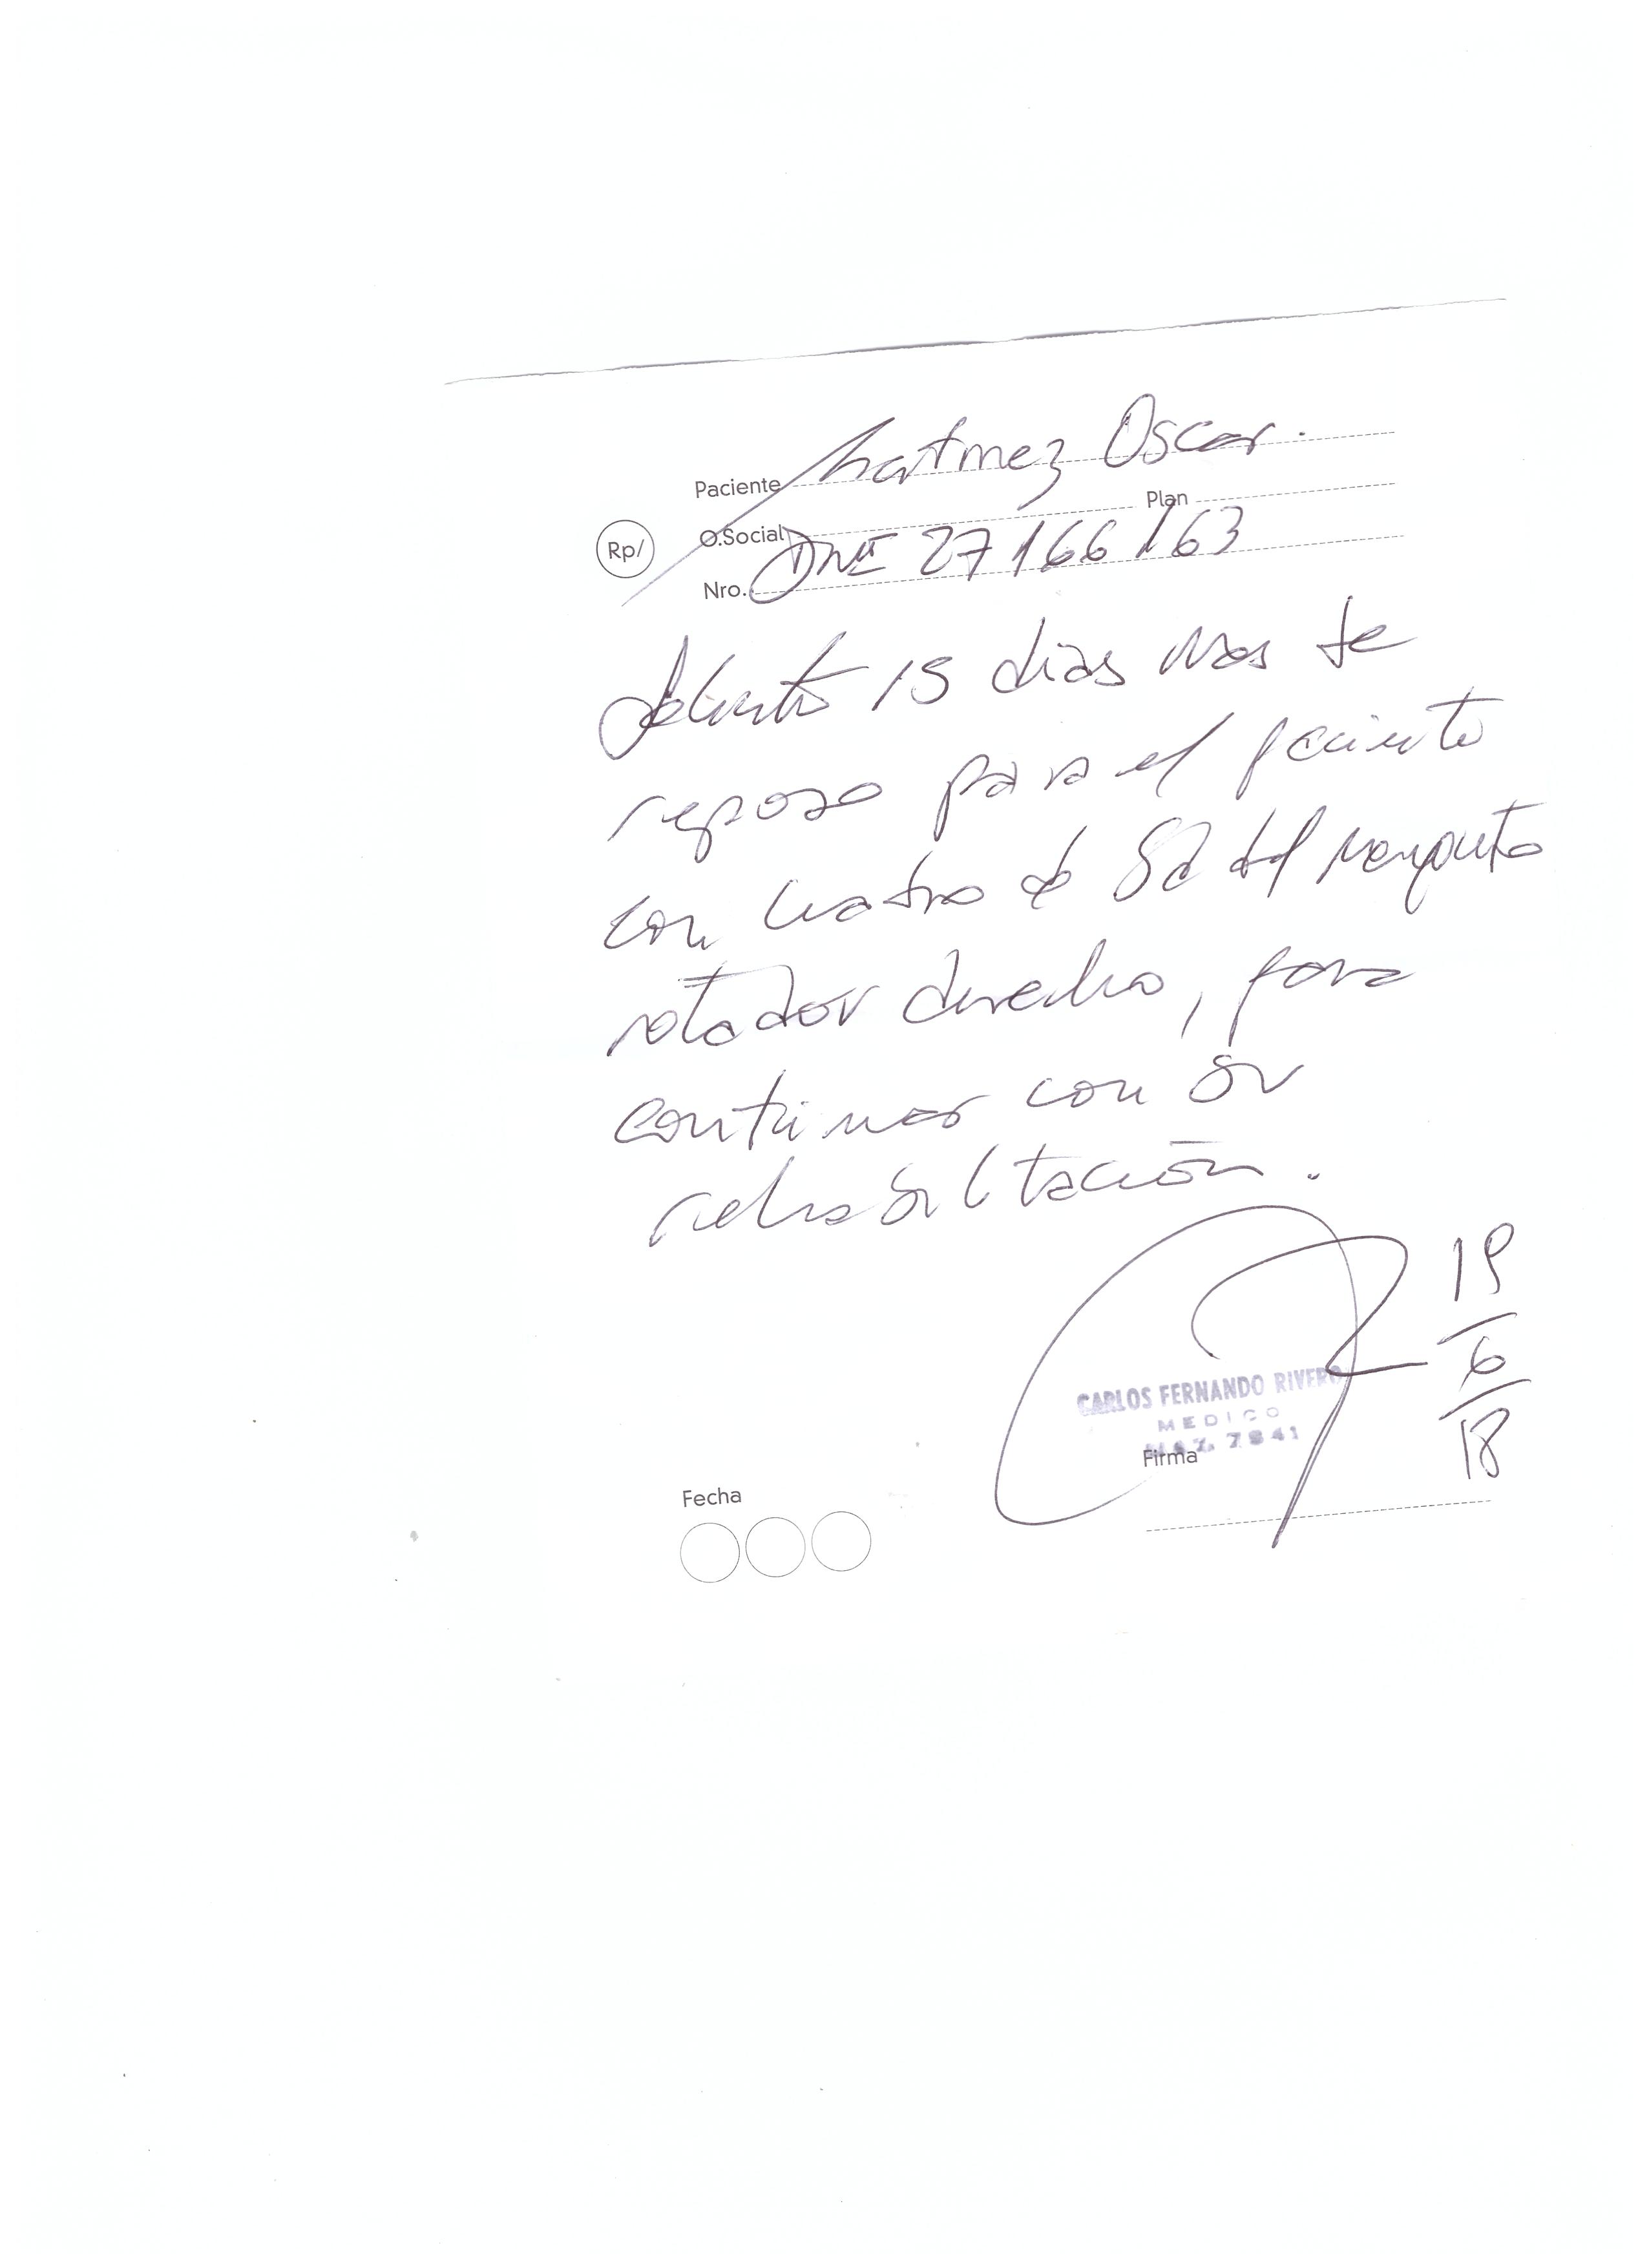 Paciente Martinez Oscar.
Plan
Rp/
O.Social
Nro. DNI 27 166 163
Solicito 15 dias mas de
reposo para el paciente
con cuadro de Sd del manguito
rotador derecho, para
continuar con su
rehabilitación.
19
6
18
CARLOS FERNANDO RIVERO
MEDICO
MAT. 7841
Firma
Fecha